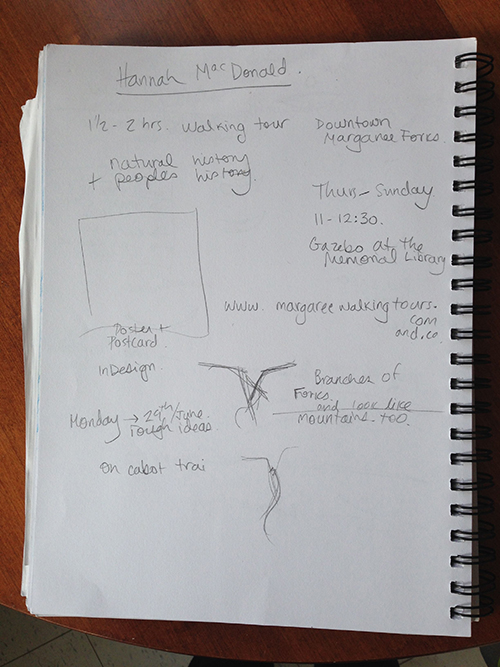 Hannah MacDonald.
1½ - 2 hrs. walking tour
natural history
+ peoples history.
Downtown
Margaree Forks.
Thurs - Sunday
11 - 12:30.
Gazebo at the
Memorial Library
www. margareewalkingtours.
com
and.ca
Poster +
Postcard.
InDesign.
Monday → 29th/June.
rough ideas.
on cabot trai
Branches of
Forks.
and look like
mountains - too.